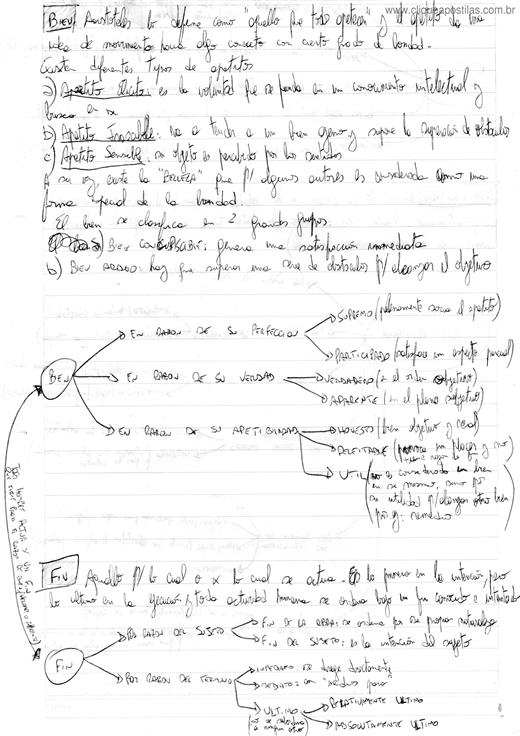 www.cliqueapostilas.com.br
BIEN/ Aristóteles lo define como "aquello que todo apetecen" y el apetito da una
idea de movimiento para algo concreto con cierto grado de bondad.
Existen diferentes tipos de apetitos
a) Apetito Elícito: es la voluntad que se funda en un conocimiento intelectual y
busca en sí
b) Apetito Irascible: va a tender a un bien ajeno y supone la superación de obstáculos
c) Apetito Sensible: su objeto es percibido por los sentidos
A su vez, existe la "BELLEZA" que p/ algunos autores es considerada como una
forma especial de la bondad.
El bien se clasifica en 2 grandes grupos.
a) BIEN CONCUPISCIBLE: genera una satisfacción inmediata
b) BIEN ARDUO: hay que superar una serie de obstáculos p/ alcanzar el objetivo
BIEN
EN RAZON DE SU PERFECCION
SUPREMO (plenamente sacia el apetito)
PARTICIPADO (satisface un aspecto parcial)
EN RAZON DE SU VERDAD
VERDADERO (en el orden objetivo)
APARENTE (en el plano subjetivo)
EN RAZON DE SU APETIBILIDAD
HONESTO (bien objetivo y real)
DELEITABLE (provoca un placer y no
UTIL (no es considerado un bien
en sí mismo, sino por
su utilidad p/ alcanzar otro bien
por ej: remedio)
TODO HOMBRE ACTUA X UN FIN
FIN Aquello p/ lo cual o x lo cual se actúa. Es lo primero en la intención, pero
lo último en la ejecución y toda actividad humana se ordena bajo un fin conocido e intentado
FIN
POR RAZON DEL SUJETO
FIN DE LA OBRA: se ordena por su propia naturaleza
FIN DEL SUJETO: es la intención del sujeto
POR RAZON DEL TERMINO
INMEDIATO: se dirige directamente
MEDIATO: con "medios para"
ULTIMO
(no se subordina
a ningún otro)
RELATIVAMENTE ULTIMO
ABSOLUTAMENTE ULTIMO